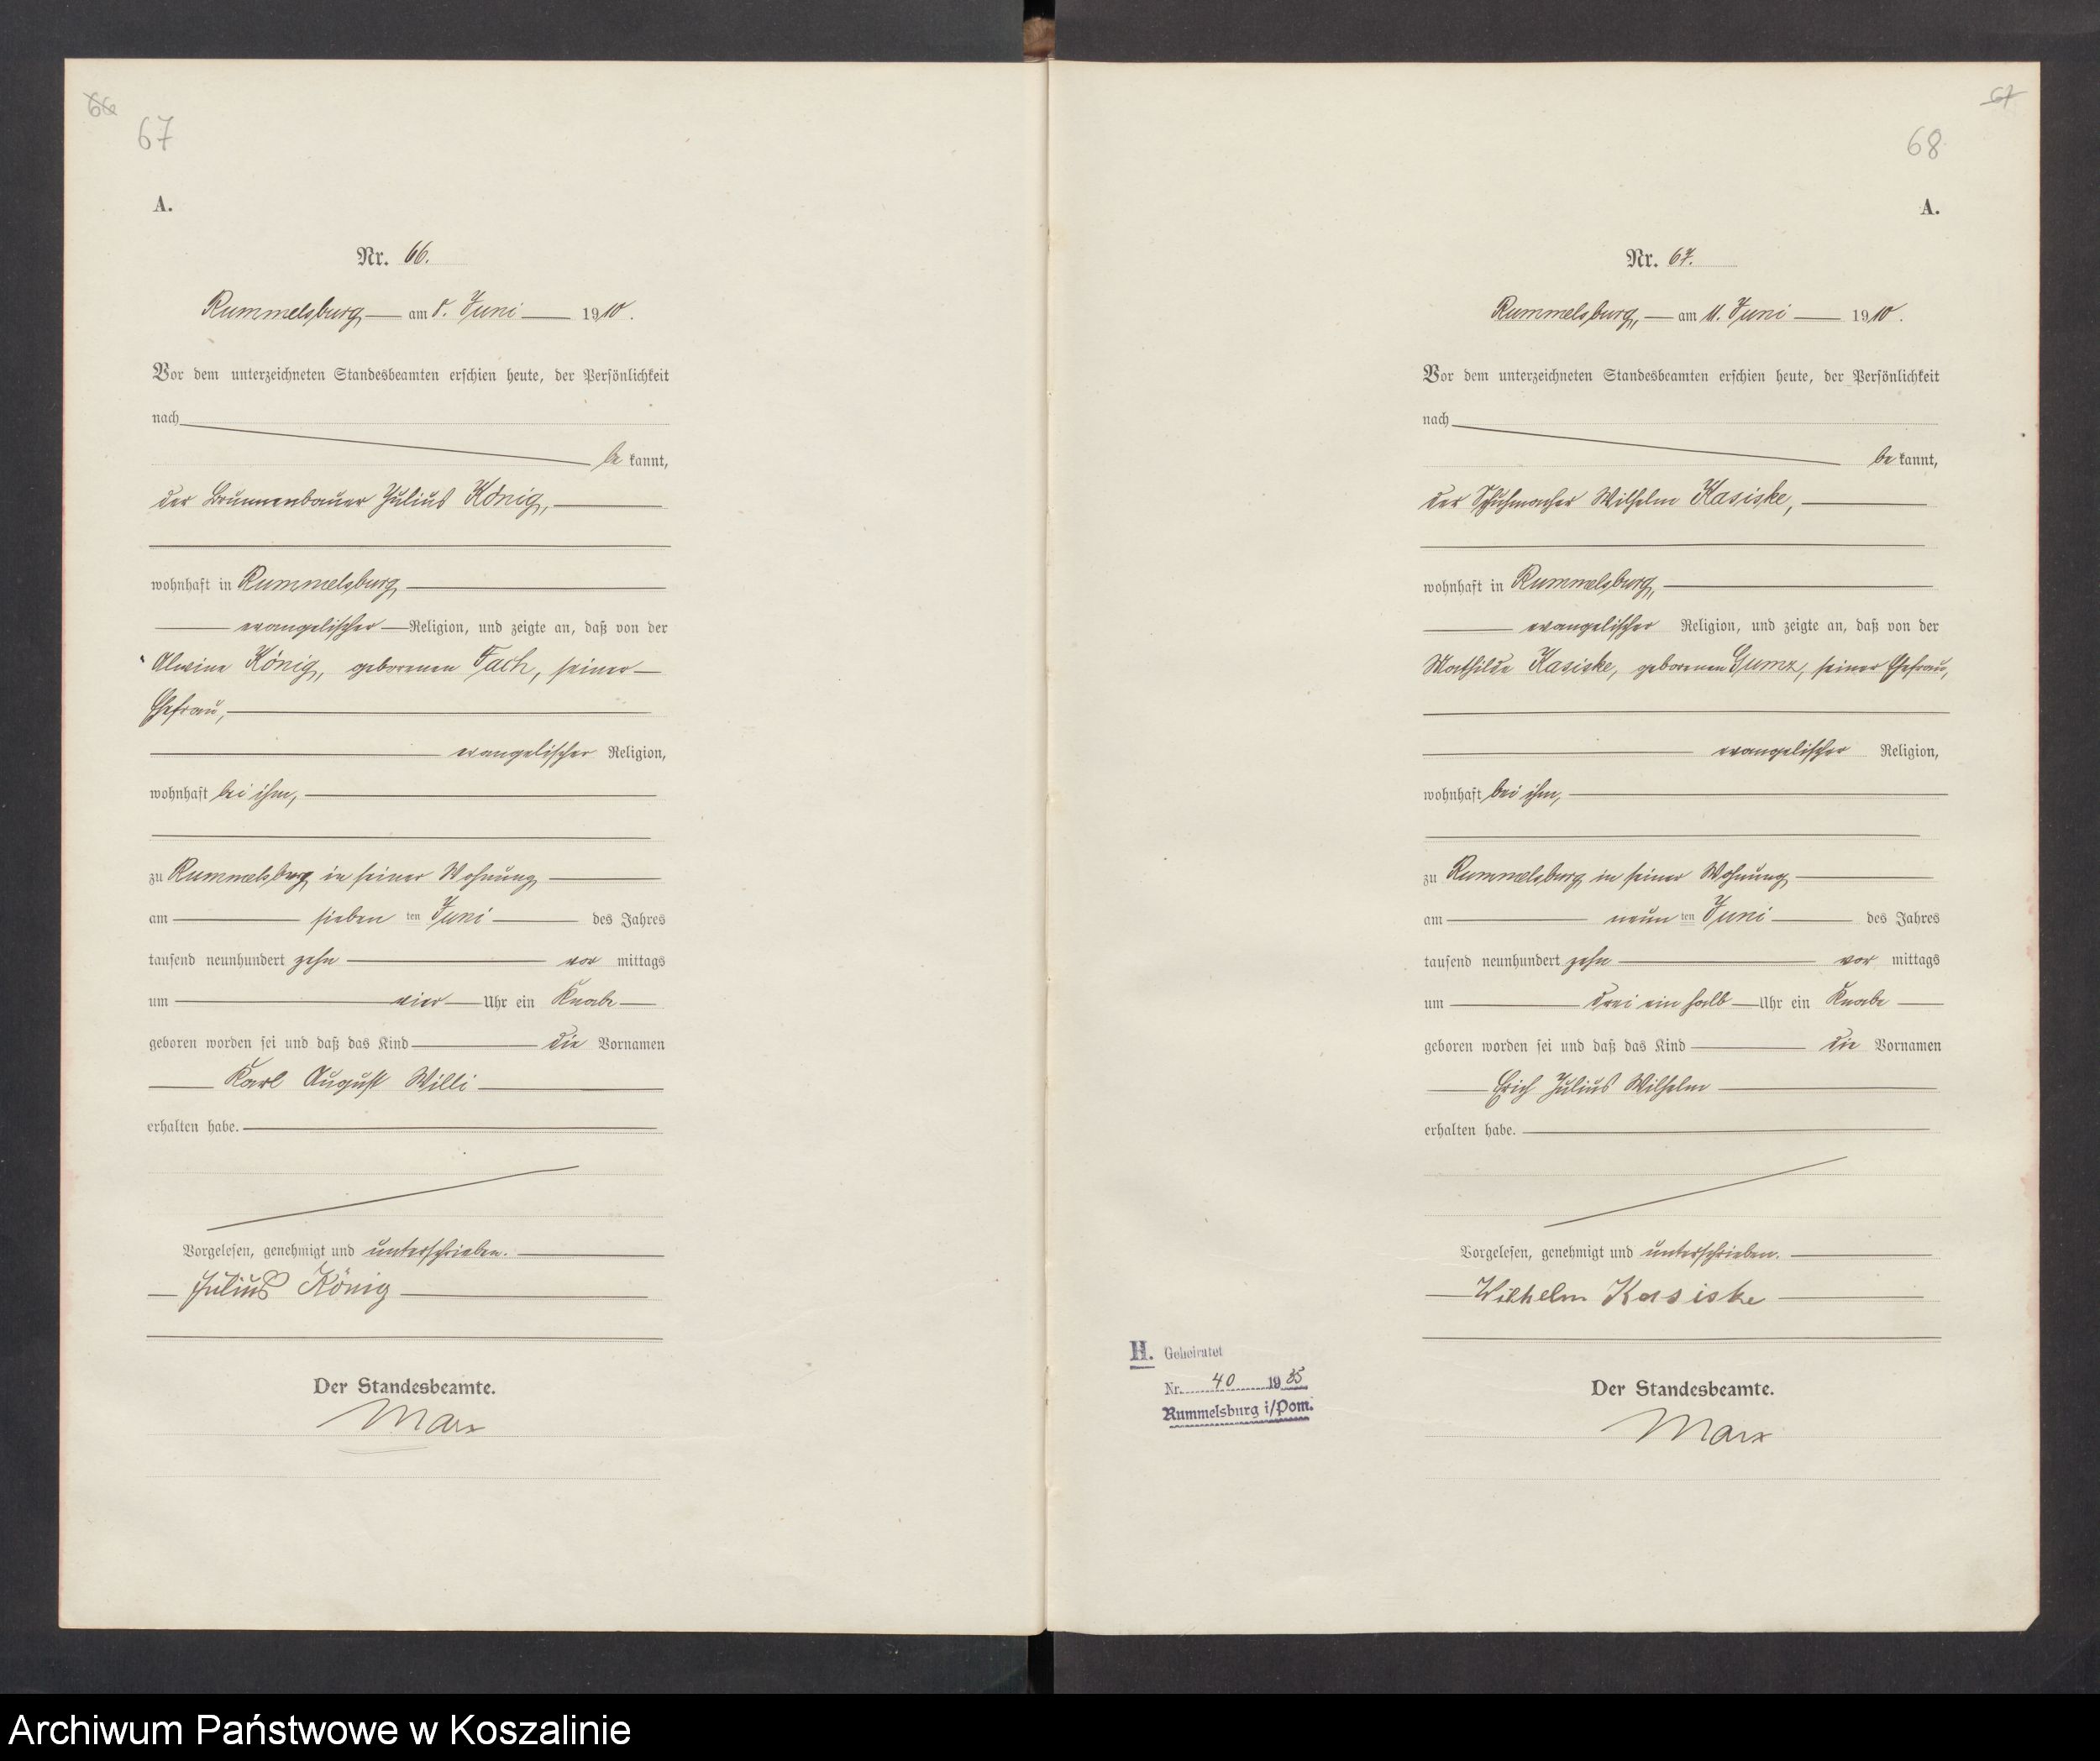 66
67
A.
Nr. 66.
Rummelsburg, am 8. Juni 1910.
Vor dem unterzeichneten Standesbeamten erschien heute, der Persönlichkeit
nach
be kannt,
der Brunnenbauer Julius König,
wohnhaft in Rummelsburg,
evangelischer Religion, und zeigte an, daß von der
Alwine König, geborenen Fach, seiner
Ehefrau,
evangelischer Religion,
wohnhaft bei ihm,
zu Rummelsburg in seiner Wohnung
am sieben ten Juni des Jahres
tausend neunhundert zehn vor mittags
um vier Uhr ein Knabe
geboren worden sei und daß das Kind die Vornamen
Karl August Willi
erhalten habe.
Vorgelesen, genehmigt und unterschrieben.
Julius König
Der Standesbeamte.
Marx
67
68
A.
Nr. 67.
Rummelsburg, am 11. Juni 1910.
Vor dem unterzeichneten Standesbeamten erschien heute, der Persönlichkeit
nach
be kannt,
der Schuhmacher Wilhelm Kasiske,
wohnhaft in Rummelsburg,
evangelischer Religion, und zeigte an, daß von der
Mathilde Kasiske, geborenen Gumz, seiner Ehefrau,
evangelischer Religion,
wohnhaft bei ihm,
zu Rummelsburg in seiner Wohnung
am neun ten Juni des Jahres
tausend neunhundert zehn vor mittags
um drei ein halb Uhr ein Knabe
geboren worden sei und daß das Kind die Vornamen
Erich Julius Wilhelm
erhalten habe.
Vorgelesen, genehmigt und unterschrieben.
Wilhelm Kasiske
H. Geheiratet
Nr. 40 1935
Rummelsburg i/Pom.
Der Standesbeamte.
Marx
Archiwum Państwowe w Koszalinie